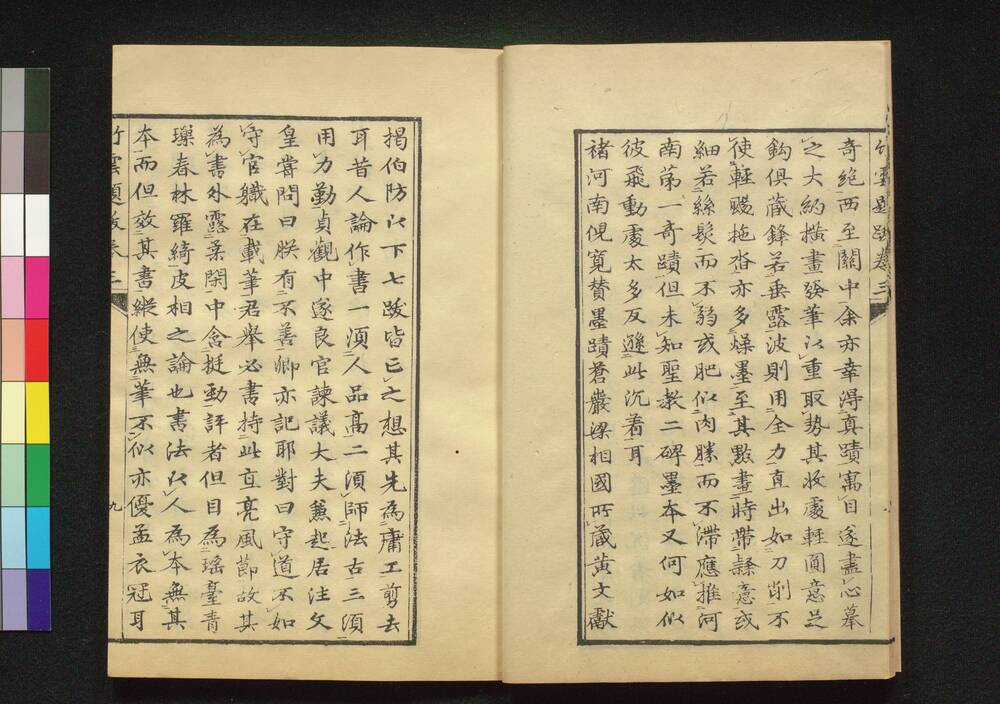 竹雲題跋卷三
奇絕西至關中余亦幸得真蹟寓目遂盡心摹
之大約橫畫發筆以重取勢其收處輕圓意足
鈎俱藏鋒若垂露波則用全力直出如刀削不
使輕颺拖沓亦多燥墨至其點畫時帶隸意或
細若絲髮而不弱或肥似肉勝而不滯應推河
南第一奇蹟但未知聖教二碑墨本又何如似
彼飛動處太多反遜此沉着耳
褚河南倪寬贊墨蹟蒼巖梁相國所藏黃文獻
揭伯防以下七跋皆亡之想其先為庸工剪去
耳昔人論作書一須人品高二須師法古三須
用力勤貞觀中遂良官諫議大夫兼起居注文
皇嘗問曰朕有不善卿亦記耶對曰守道不如
守官職在載筆君舉必書持此亘亮風節故其
為書外露柔閑中含挺勁評者但目為瑤臺青
瑣春林羅綺皮相之論也書法以人為本無其
本而但效其書縱使無筆不似亦優孟衣冠耳
竹雲題跋卷三
九